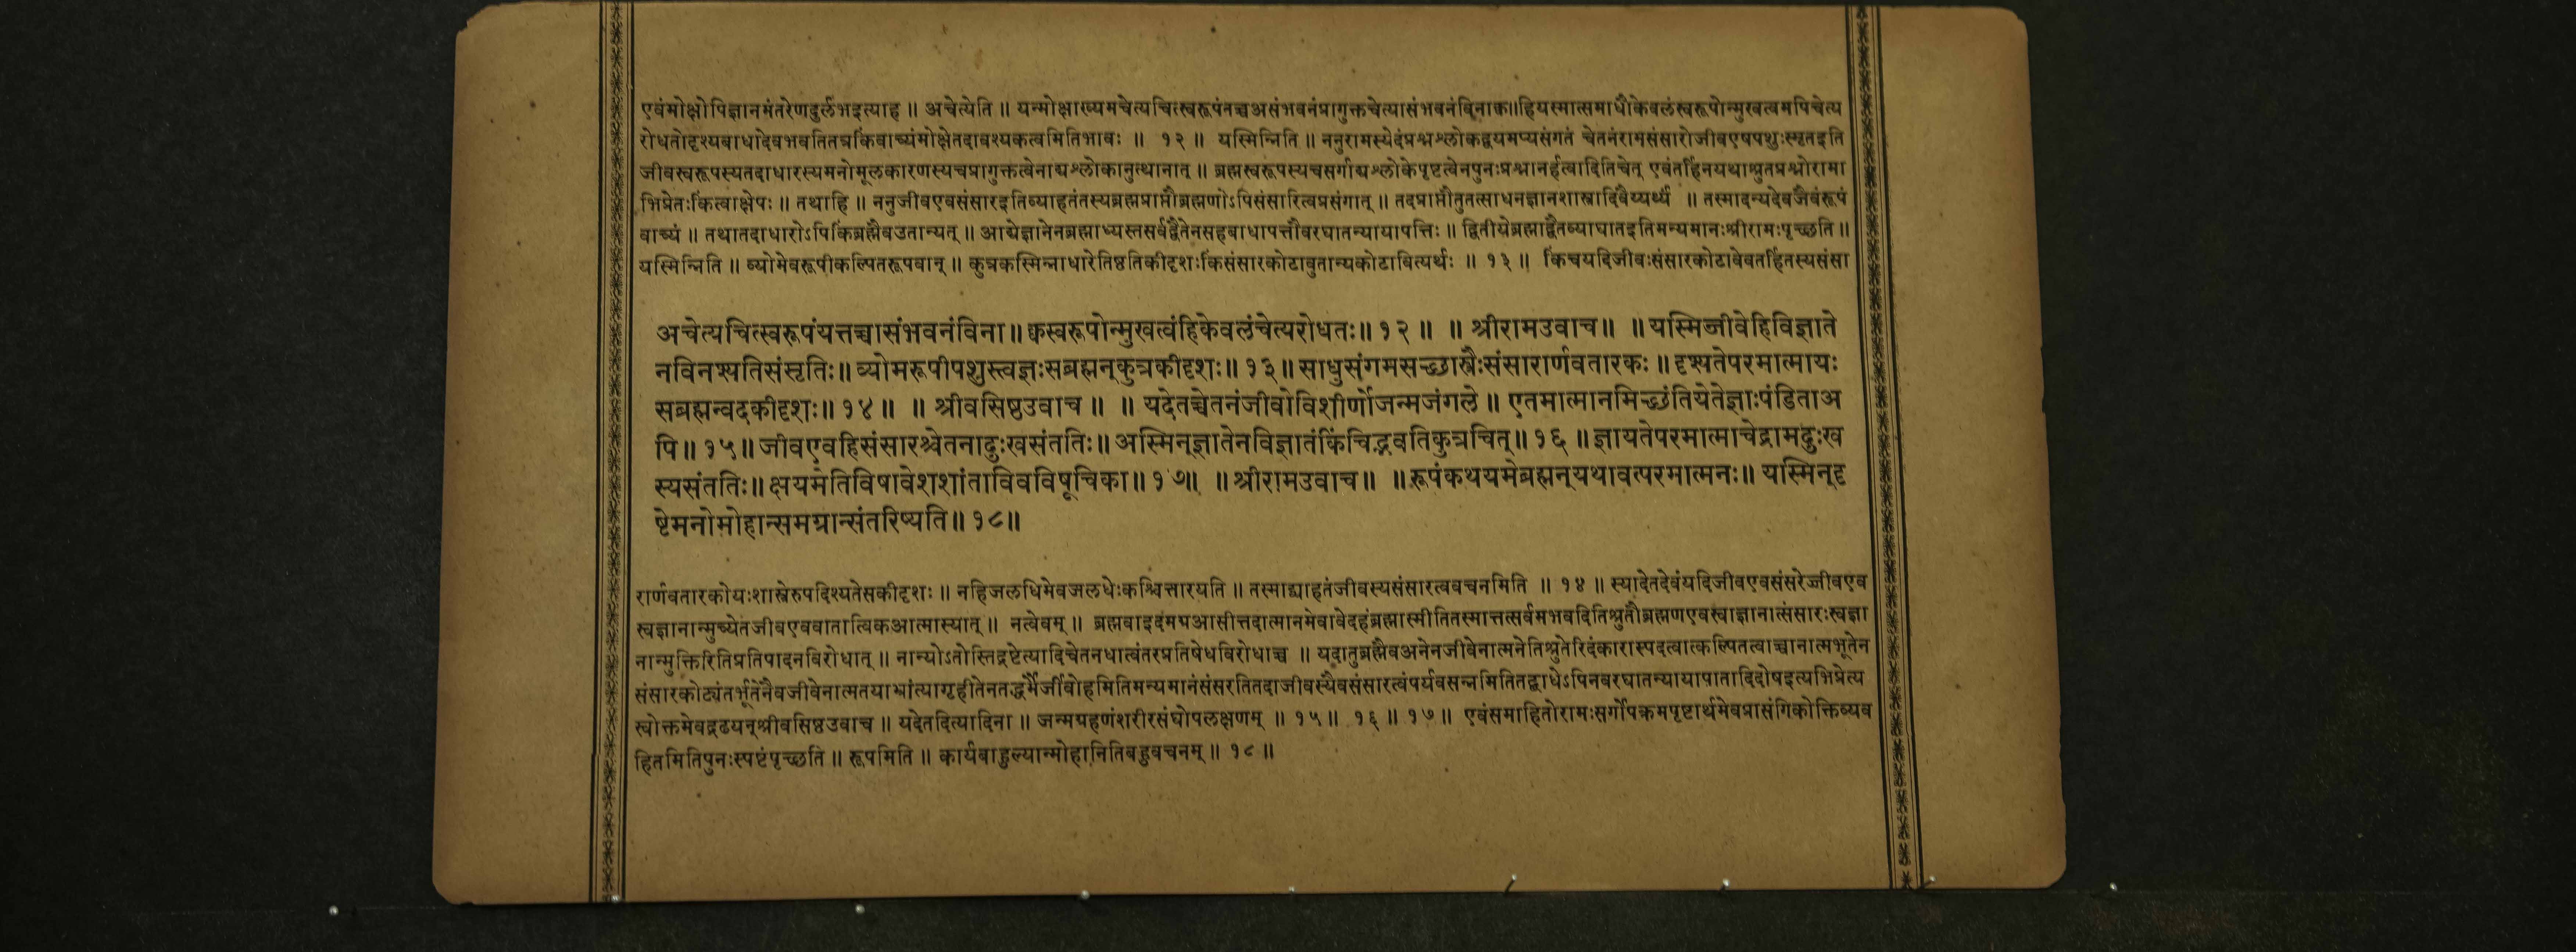 एवंमोक्षोपिज्ञानमंतरेणदुर्लभइत्याह ॥ अचेत्येति ॥ यन्मोक्षाख्यमचेत्यचित्स्वरूपंतच्चअसंभवनंप्रागुक्तचेत्यासंभवनंविनाक्व॥हियस्मात्समाधौकेवलंस्वरूपोन्मुखत्वमपिचेत्य
रोधतोदृश्यबाधादेवभवतितत्रकिंवाच्यंमोक्षेतदावश्यकत्वमितिभावः ॥ १२ ॥ यस्मिन्निति ॥ ननुरामस्येदंप्रश्नश्लोकद्वयमप्यसंगतं चेतनंरामसंसारोजीवएषपशुःस्मृतइति
जीवस्वरूपस्यतदाधारस्यमनोमूलकारणस्यचप्रागुक्तत्वेनाद्यश्लोकानुत्थानात् ॥ ब्रह्मस्वरूपस्यचसर्गाद्यश्लोकेपृष्टत्वेनपुनःप्रश्नानर्हत्वादितिचेत् एवंतर्हिनयथाश्रुतप्रश्नोरामा
भिप्रेतःकिंत्वाक्षेपः ॥ तथाहि ॥ ननुजीवएवसंसारइतिव्याहतंतस्यब्रह्मप्राप्तौब्रह्मणोऽपिसंसारित्वप्रसंगात् ॥ तदप्राप्तौतुतत्साधनज्ञानशास्त्रादिवैय्यर्थ्यं ॥ तस्मादन्यदेवजैवंरूपं
वाच्यं ॥ तथातदाधारोऽपिकिंब्रह्मैवउतान्यत् ॥ आद्येज्ञानेनब्रह्माध्यस्तसर्वद्वैतेनसहबाधापत्तौवरघातन्यायापत्तिः ॥ द्वितीयेब्रह्माद्वैतव्याघातइतिमन्यमानःश्रीरामःपृच्छति ॥
यस्मिन्निति ॥ व्योमेवरूपीकल्पितरूपवान् ॥ कुत्रकस्मिन्नाधारेतिष्ठतिकीदृशःकिंसंसारकोटावुतान्यकोटावित्यर्थः ॥ १३ ॥ किंचयदिजीवःसंसारकोटावेवतर्हितस्यसंसा
अचेत्यचित्स्वरूपंयत्तच्चासंभवनंविना॥क्वस्वरूपोन्मुखत्वंहिकेवलंचेत्यरोधतः॥१२॥ ॥श्रीरामउवाच॥ ॥यस्मिञ्जीवेहिविज्ञाते
नविनश्यतिसंसृतिः॥व्योमरूपीपशुस्त्वज्ञःसब्रह्मन्कुत्रकीदृशः॥१३॥साधुसंगमसच्छास्त्रैःसंसारार्णवतारकः॥दृश्यतेपरमात्मायः
सब्रह्मन्वदकीदृशः॥१४॥ ॥श्रीवसिष्ठउवाच॥ ॥यदेतच्चेतनंजीवोविशीर्णोजन्मजंगले॥एतमात्मानमिच्छंतियेतेज्ञाःपंडिताअ
पि॥१५॥जीवएवहिसंसारश्चेतनाद्दुःखसंततिः॥अस्मिन्ज्ञातेनविज्ञातंकिंचिद्भवतिकुत्रचित्॥१६॥ज्ञायतेपरमात्माचेद्रामदुःख
स्यसंततिः॥क्षयमेतिविषावेशशांताविवविषूचिका॥१७॥ ॥श्रीरामउवाच॥ ॥रूपंकथयमेब्रह्मन्यथावत्परमात्मनः॥यस्मिन्दृ
ष्टेमनोमोहान्समग्रान्संतरिष्यति॥१८॥
रार्णवतारकोयःशास्त्रेरुपदिश्यतेसकीदृशः ॥ नहिजलधिमेवजलधेःकश्चित्तारयति ॥ तस्माद्व्याहतंजीवस्यसंसारत्ववचनमिति ॥ १४ ॥ स्यादेतदेवंयदिजीवएवसंसरेज्जीवएव
स्वज्ञानान्मुच्येतजीवएववातात्विकआत्मास्यात् ॥ नत्वेवम् ॥ ब्रह्मवाइदमग्रआसीत्तदात्मानमेवावेदहंब्रह्मास्मीतितस्मात्तत्सर्वमभवदितिश्रुतौब्रह्मणएवस्वाज्ञानात्संसारःस्वज्ञा
नान्मुक्तिरितिप्रतिपादनविरोधात् ॥ नान्योऽतोस्तिद्रष्टेत्यादिचेतनधात्वंतरप्रतिषेधविरोधाच्च ॥ यदातुब्रह्मैवअनेनजीवेनात्मनेतिश्रुतेरिदंकारास्पदत्वात्कल्पितत्वाच्चानात्मभूतेन
संसारकोट्यंतर्भूतेनैवजीवेनात्मतयाभ्रांत्यागृहीतेनतद्धर्मैर्जीवोहमितिमन्यमानंसंसरतितदाजीवस्यैवसंसारत्वंपर्यवसन्नमितितद्बाधेऽपिनवरघातन्यायापातादिदोषइत्यभिप्रेत्य
स्वोक्तमेवद्रढयन्श्रीवसिष्ठउवाच ॥ यदेतदित्यादिना ॥ जन्मग्रहणंशरीरसंघोपलक्षणम् ॥ १५॥ १६ ॥ १७ ॥ एवंसमाहितोरामःसर्गोपक्रमपृष्टार्थमेवप्रासंगिकोक्तिव्यव
हितमितिपुनःस्पष्टंपृच्छति ॥ रूपमिति ॥ कार्यबाहुल्यान्मोहानितिबहुवचनम् ॥ १८ ॥